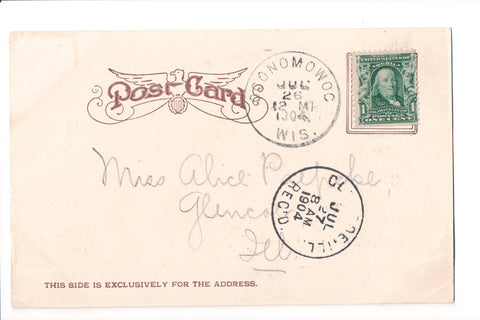 Post Card
OCONOMOWOC
JUL
26
12 M
1904
WIS.
UNITED STATES OF AMERICA
1 1
ONE CENT
Miss Alice
Glencoe
Ill.
JUL
27
8 AM
1904
REC'D.
ILL.
THIS SIDE IS EXCLUSIVELY FOR THE ADDRESS.